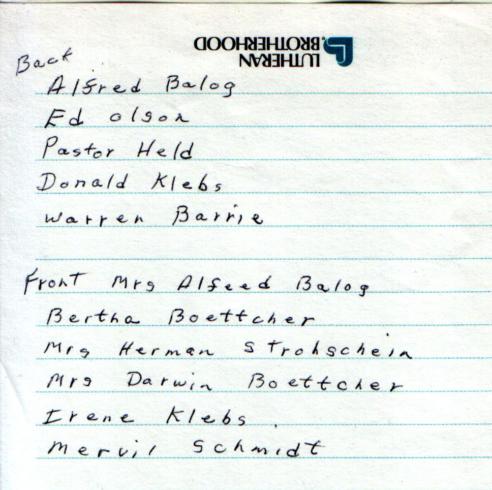 LUTHERAN
BROTHERHOOD
Back
Alfred Balog
Ed Olson
Pastor Held
Donald Klebs
Warren Barrie
Front Mrs Alfeed Balog
Bertha Boettcher
Mrs Herman Strohschein
Mrs Darwin Boettcher
Irene Klebs
Mervil Schmidt